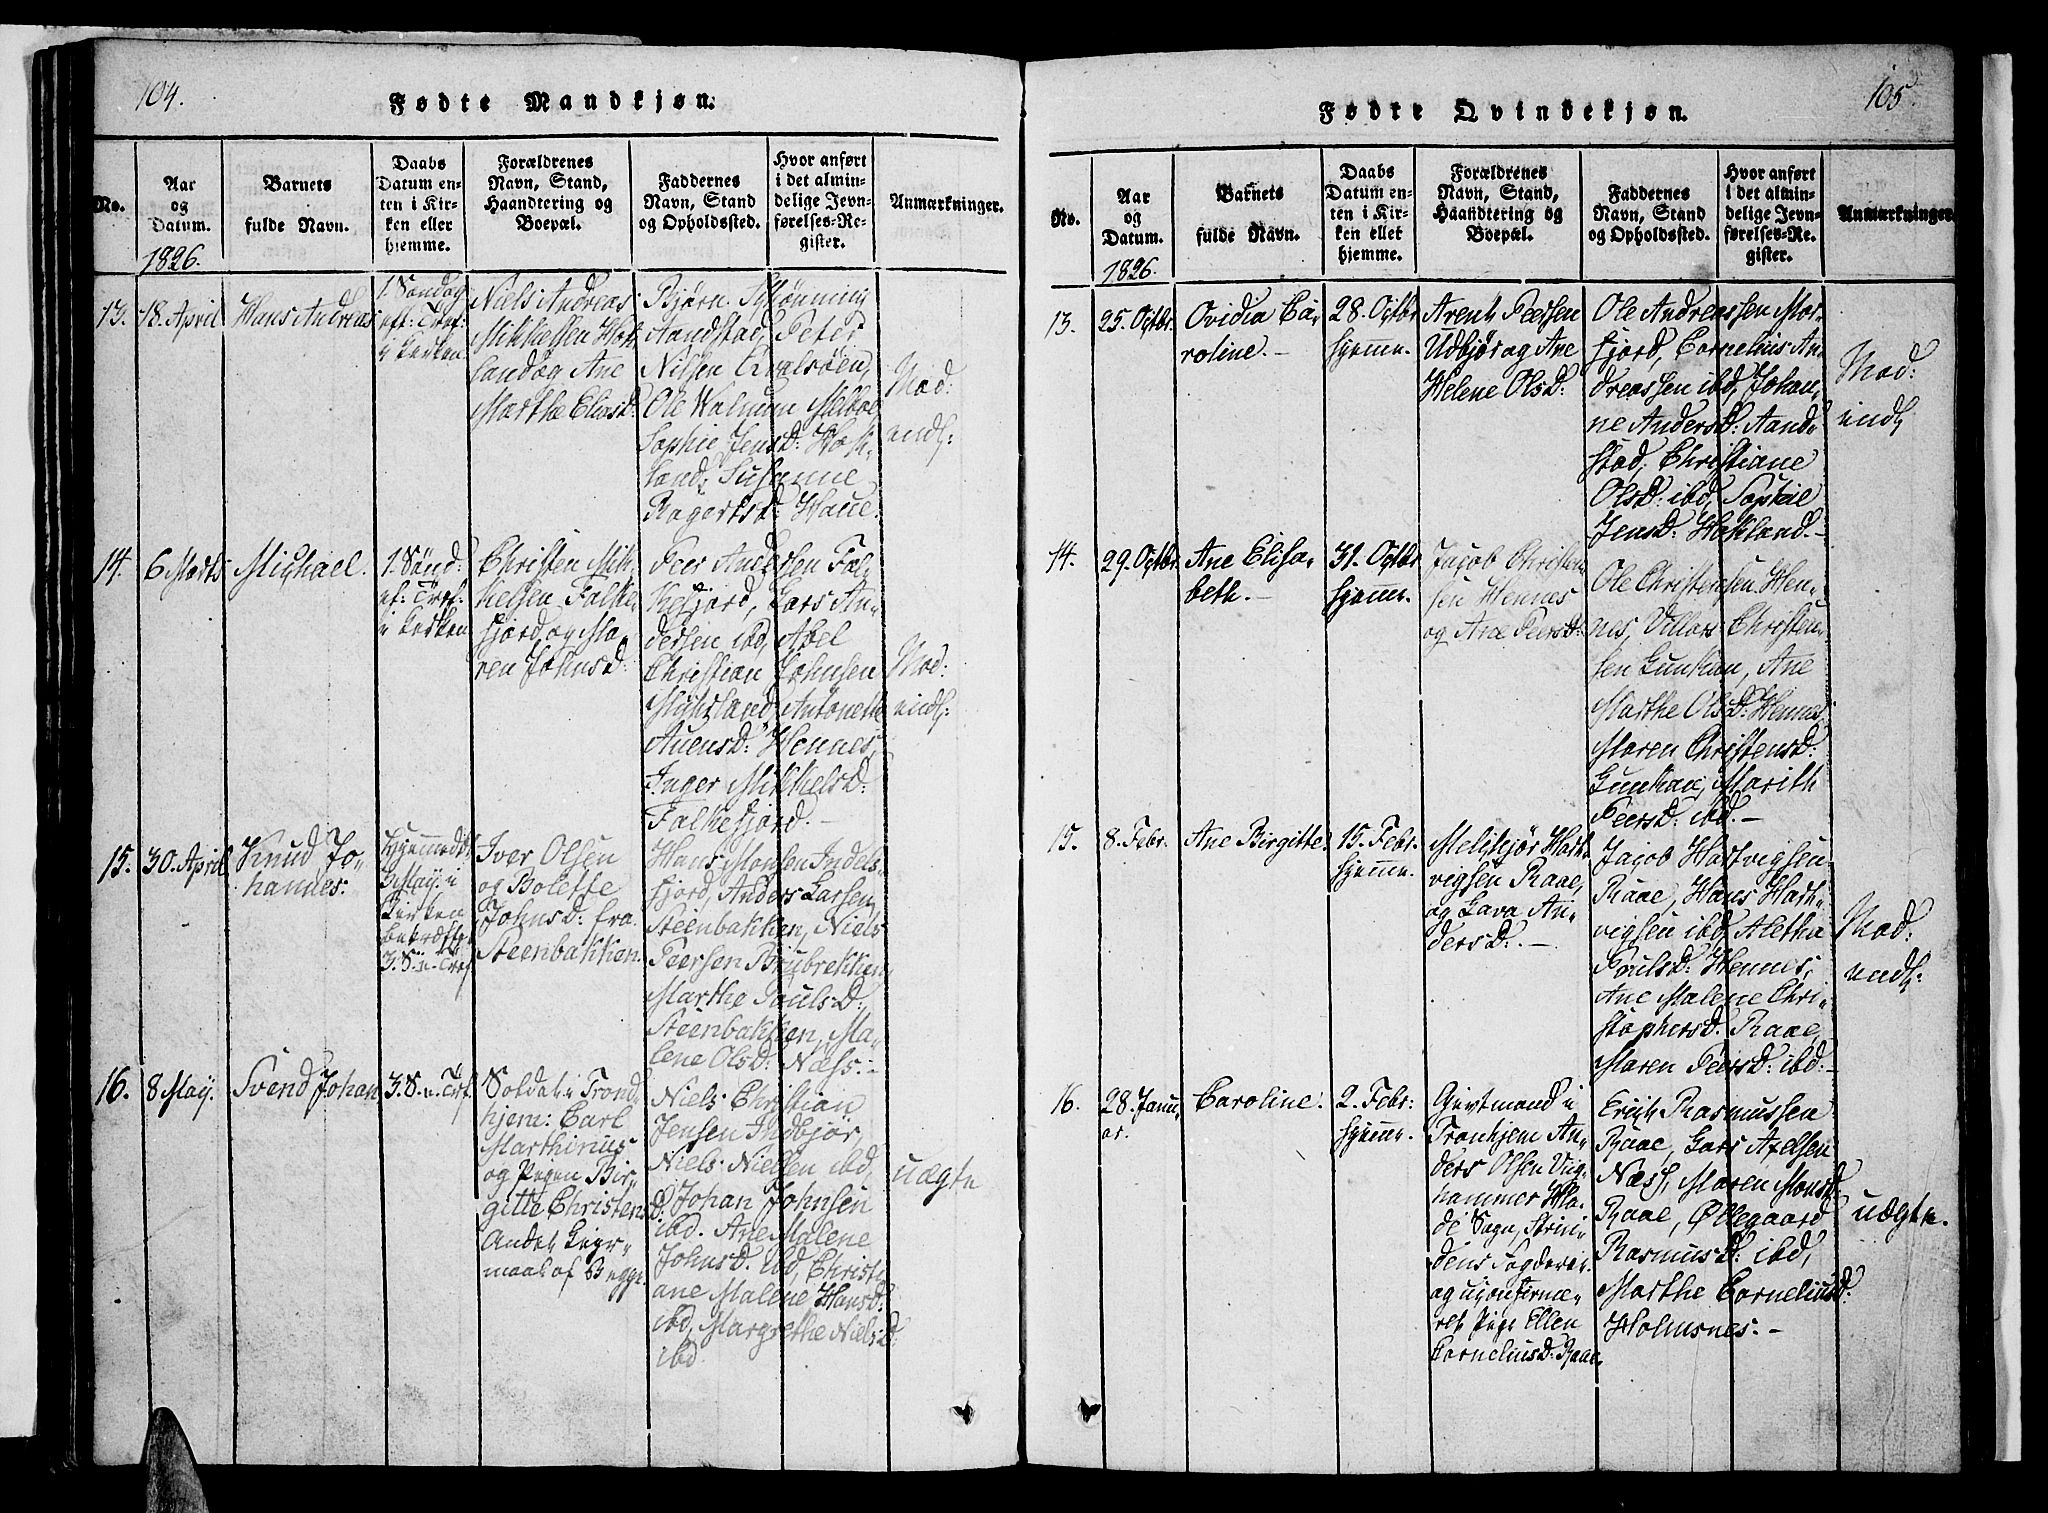 104.
Fødte Mandkjøn.
No.
Aar
og
Datum.
1826.
Barnets
fulde Navn.
Daabs
Datum en-
ten i Kir-
ken eller
hjemme.
Forældrenes
Navn, Stand,
Haandtering og
Boepæl.
Faddernes
Navn, Stand
og Opholdssted.
Hvor anført
i det almin-
delige Jevn-
førelses-Re-
gister.
Anmærkninger.
13.
18. April
Hans Andreas
1. Søndag
ef: Tref:
i Kirken
Niels Andreas
Mikkelsen Hok
land og Ane
Marthe Eliasd:
Bjørn
Aandstad, Peter
Nilsen
Ole Walnum Melboe
Sophie Jensd: Hok,,
land, Susanne
Ragertsd: Haue.
Mod:
indl:
14.
6 Marts
Michael.
1. Sønd:
ef: Tref:
i Kirken
Christen Mik,,
kelsen Falke,,
fjord og Ma,,
ren Johnsd:
Peer Andersen Fal,,
kefjord, Lars An,,
dersen ibd, Abel
Christian Johnsen
Myhrland, Antonette
Auensd: Hennes,
Inger Mikkelsd:
Falkefjord. –
Mod:
indl:
15.
30. April
Knud Jo,,
hannes:
Hjemmedøbt
3 May: i
Kirken
bekræftet
3. S. n. Tref
Iver Olsen
og Bolette
Johnsd: fra
Steenbakken.
Hans Monsen Indels,,
fjord, Anders Larsen
Steenbakken, Niels
Peersen Brubrekken
Marthe Paulsd:
Steenbakken, Ma,,
lene Olsd: Næss. –
16.
8 May.
Svend Johan
3. S. n. Tref.
Soldat i Trond,,
hjem: Carl
Marthinus
og Pigen Bir,,
gitte Christensd:
Andet Leyer,,
maal af Begge.
Niels Christian
Jensen Indbjør,
Niels Nielsen ibd,
Johan Johnsen
ibd. Ane Malene
Johnsd. ibd, Christi
ane Malene Hansd:
ibd, Margrethe Nielsd.
ibd.
uægte
105.
Fødte Qvindekjøn.
No.
Aar
og
Datum.
1826.
Barnets
fulde Navn.
Daabs
Datum en-
ten i Kir-
ken eller
hjemme.
Forældrenes
Navn, Stand,
Haandtering og
Boepæl.
Faddernes
Navn, Stand
og Opholdssted.
Hvor anført
i det almin-
delige Jevn-
førelses-Re-
gister.
Anmærkninger
13.
25. Octbr.
Ovidia Ca,,
roline. –
28. Octbr
hjemme.
Arent Peersen
Udbjør og Ane
Helene Olsd:
Ole Andreassen Mor,,
fjord, Cornelius An,,
dreassen ibd, Johan,,
ne Andersd: Aand,,
stad, Christiane
Olsd: ibd, Sophie
Jensd: Hokland. –
Mod:
indl:
14.
29. Octbr.
Ane Elisa,,
beth. –
31. Octbr
hjemme.
Jacob Christen
sen Hennes
og Ane Peersd:
Ole Christensen Hen,,
nes, Villars Christen,,
sen Gunhan, Ane
Marthe Olsd: Hennes,
Maren Christensd:
Gunhan, Marith
Peersd: ibd. –
15.
8. Febr.
Ane Birgitte.
15. Febr.
hjemme.
Melchejør Hart
vigsen Raae,
og Lava An,,
dersd: –
Jacob Hartvigsen
Raae, Hans Hart,,
vigsen ibd, Aletha
Poulsd: Hennes,
Ane Malene Chri,,
stophersd. Raae,
Maren Peersd: ibd: –
Mod:
indl:
16.
28. Janu,,
ar.
Caroline.
2. Febr:
hjemme.
Givtmand i
Tronhjem An,,
ders Olsen Vig,,
hammer Ma,,
de Sogn, Strin,,
dens Fogderie.
og uconfirme,,
ret Pige Ellen
Corneliusd: Raae.
Erich Rasmussen
Raae, Lars Axelsen
Næss, Maren Monsd:
Raae, Øllegaard
Rasmusd: ibd,
Marthe Corneliusd:
Holmsnes. –
uægte.